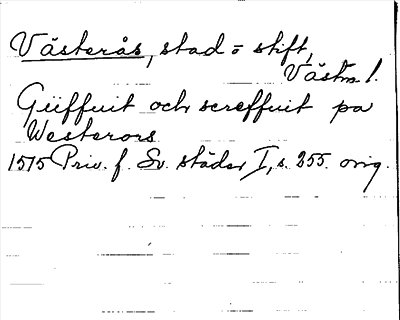 Västerås, stad o stift,
Västm. l.
Güffuit och screffuit pa
Westerors
1515 Priv. f. Sv. städer I, s. 255. orig.